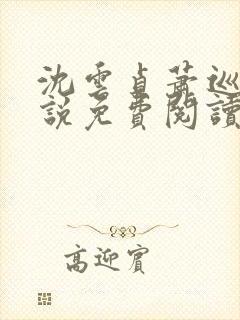 沈雲貞蕭巡
說免費閱讀
高迎賓